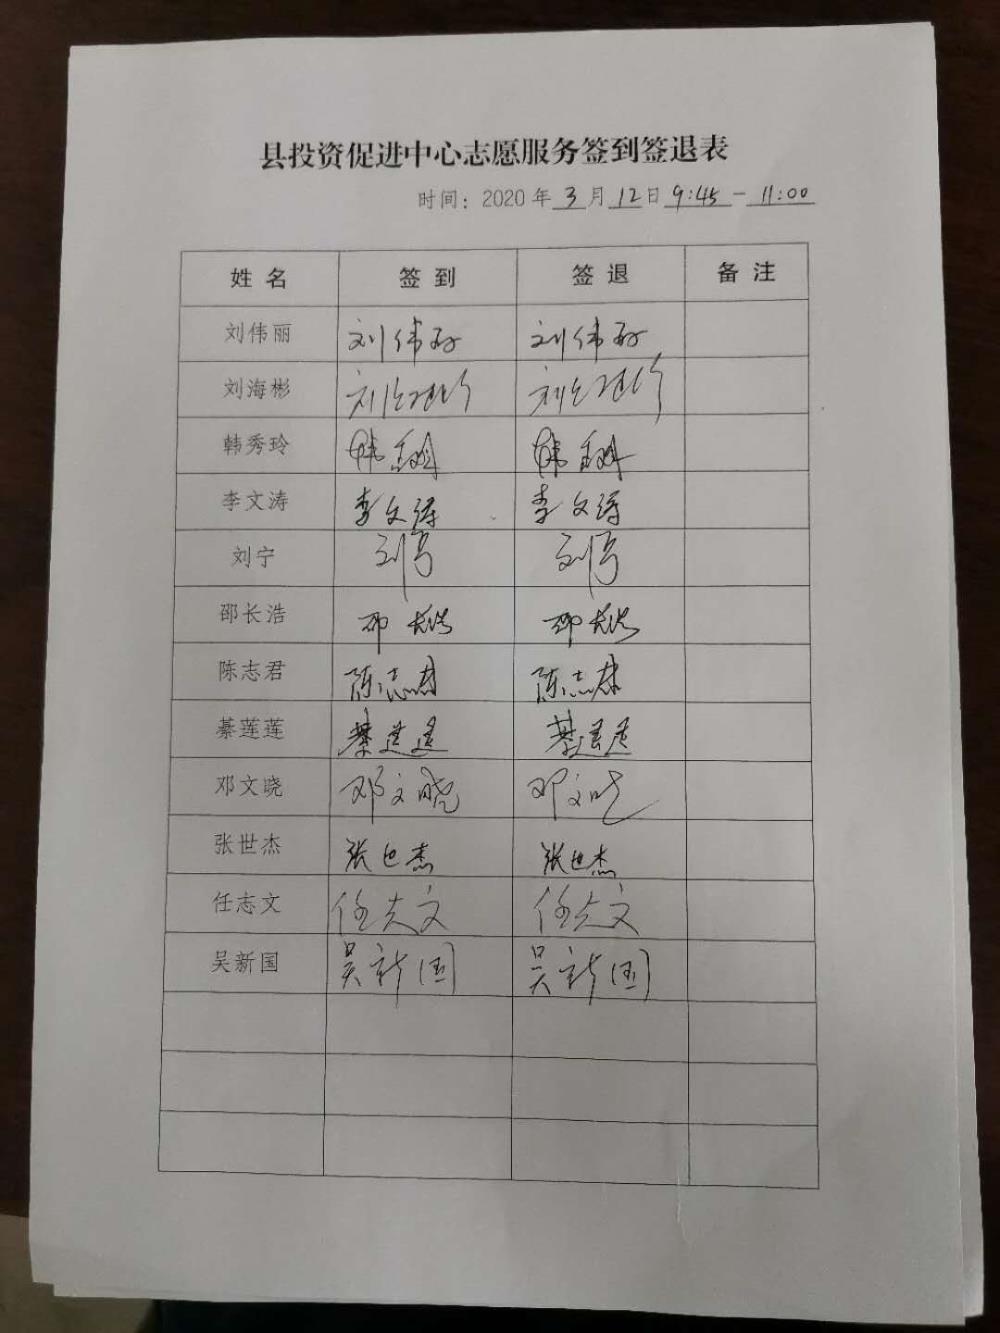 县投资促进中心志愿服务签到签退表
时间：2020年3月12日9:45-11:00
姓名 签到 签退 备注
刘伟丽 刘伟丽 刘伟丽
刘海彬 刘海彬 刘海彬
韩秀玲 韩秀玲 韩秀玲
李文涛 李文涛 李文涛
刘宁 刘宁 刘宁
邵长浩 邵长浩 邵长浩
陈志君 陈志君 陈志君
綦莲莲 綦莲莲 綦莲莲
邓文晓 邓文晓 邓文晓
张世杰 张世杰 张世杰
任志文 任志文 任志文
吴新国 吴新国 吴新国